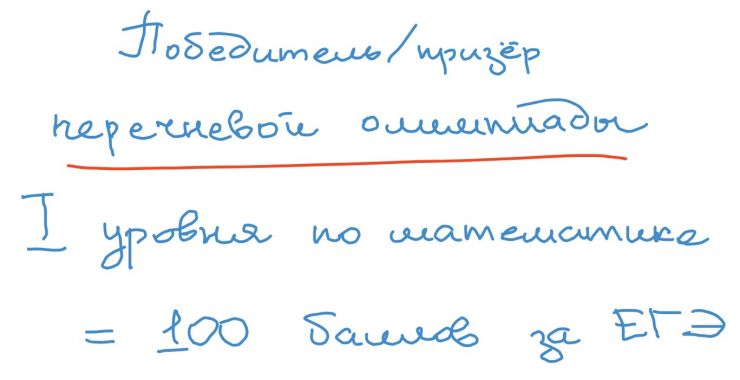 Победитель/призёр
перечневой олимпиады
I уровня по математике
= 100 баллов за ЕГЭ